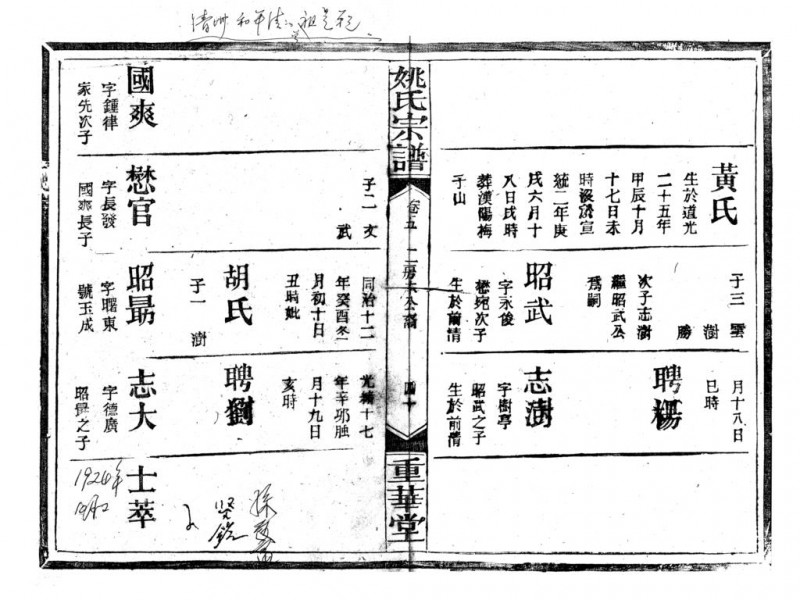 姚氏宗譜
卷五
四十
重華堂
黃氏
生於道光
二十五年
甲辰十月
十七日未
時沒於宣
統二年庚
戌六月十
八日戌時
葬漢陽梅
子山
子三 雲
澍
勝
次子志澍
繼昭武公
為嗣
昭武
字永俊
懋宛次子
生於前清
月十八日
巳時
聘楊
志澍
字樹亭
昭武之子
生於前清
國爽
字鍾律
家先次子
子二 文
武
懋官
字長發
國爽長子
同治十二
年癸酉冬
月初十日
丑時妣
胡氏
子一 澍
昭最
字聯東
號玉成
光緒十七
年辛卯
月十九日
亥時
聘劉
志大
字德廣
昭最之子
士萃
1924年